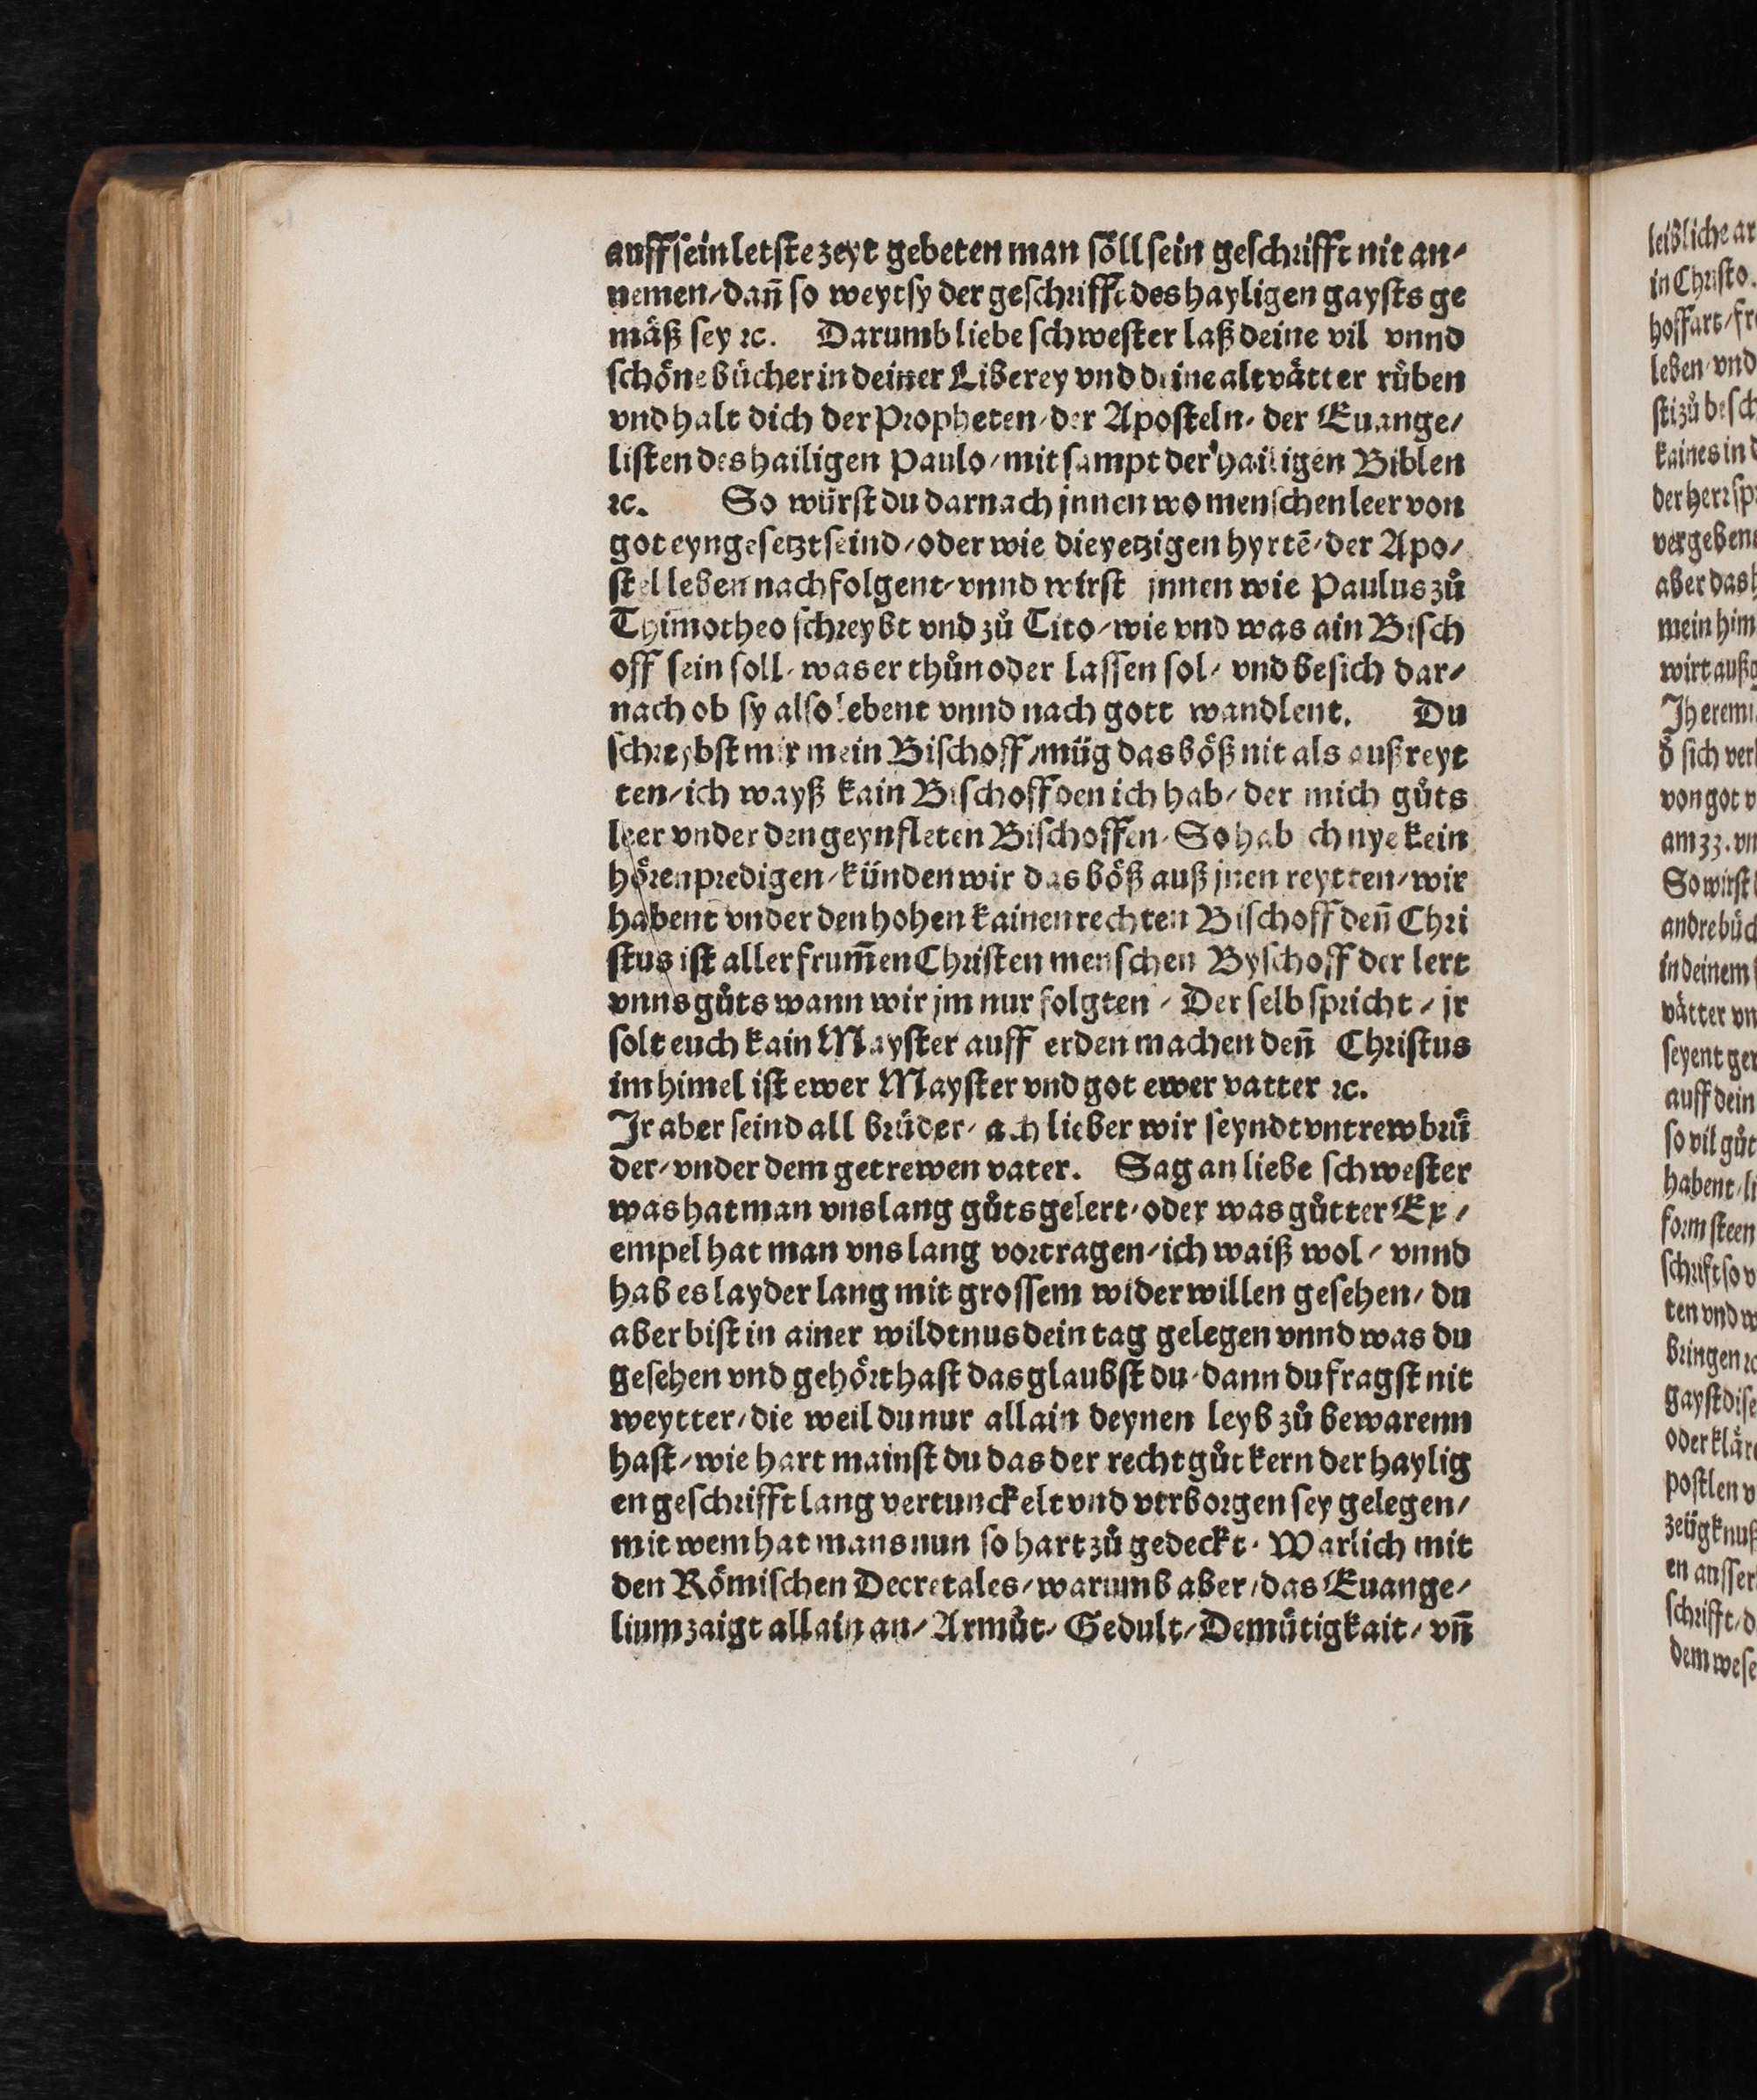 auff sein letste zeyt gebeten man söll sein geschrifft nit an/
nemen/dañ so weyt sy der geschrifft des hayligen gaysts ge
mäß sey ꝛc. Darumb liebe schwester laß deine vil vnnd
schöne bücher in deiner Liberey vnd deine altvätter růben
vnd halt dich der Propheten/der Aposteln/der Euange/
listen des hailigen Paulo/mit sampt der hailigen Biblen
ꝛc. So würst du darnach jnnen wo menschen leer von
got eyngesetzt seind/oder wie die yetzigen hyrtē/der Apo/
stel leben nachfolgent/vnnd wirst jnnen wie Paulus zů
Thimotheo schreybt vnd zů Tito/wie vnd was ain Bisch
off sein soll/was er thůn oder lassen sol/vnd besich dar/
nach ob sy also lebent vnnd nach gott wandlent. Du
schreybst mir mein Bischoff/müg das böß nit als auß reyt
ten/ich wayß kain Bischoff den ich hab/der mich gůts
leer vnder den geynfleten Bischoffen/So hab ich nye kein
hören predigen/künden wir das böß auß jnen reytten/wir
habent vnder den hohen kainen rechten Bischoff deñ Chri
stus ist aller frum̄en Christen menschen Byschoff der lert
vnns gůts wann wir jm nur folgten/Der selb spricht/jr
solt euch kain Mayster auff erden machen deñ Christus
im himel ist ewer Mayster vnd got ewer vatter ꝛc.
Jr aber seind all brüder/ach lieber wir seyndt vntrew brü
der/vnder dem getrewen vater. Sag an liebe schwester
was hat man vns lang gůts gelert/oder was gůtter Ex/
empel hat man vns lang vortragen/ich waiß wol/vnnd
hab es layder lang mit grossem widerwillen gesehen/du
aber bist in ainer wildtnus dein tag gelegen vnnd was du
gesehen vnd gehört hast das glaubst du/dann du fragst nit
weytter/die weil du nur allain deynen leyb zů bewarenn
hast/wie hart mainst du das der recht gůt kern der haylig
en geschrifft lang vertunckelt vnd verborgen sey gelegen/
mit wem hat mans nun so hart zů gedeckt/Warlich mit
den Römischen Decretales/warumb aber/das Euange/
lium zaigt allain an/Armůt/Gedult/Demütigkait/vñ
leibliche
in Christo.
hoffart/
leben/vnd
kaines in
der herr
mein
von got
am 33.
So wirst
in deinem
vätter
auff dein
so vil gůt
habent
form steen
bringen
gayst
postlen
schrifft/